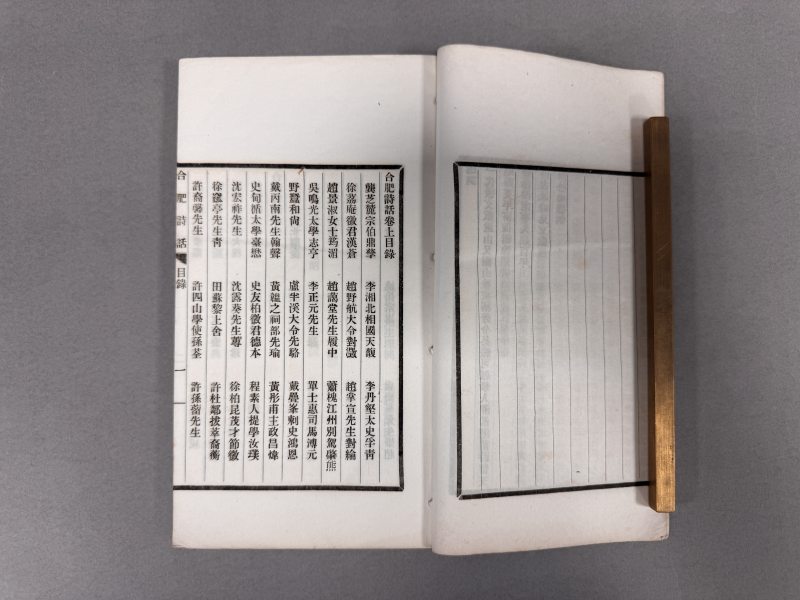 合肥詩話卷上目錄
龔芝麓宗伯鼎孳 李湘北相國天馥 李丹壑太史孚青
徐荔庵徵君漢蒼 趙野航大令對澂 趙掌宣先生對綸
趙景淑女士筠湄 趙藹堂先生履中 蕭槐江州別駕夢熊
吳鳴光太學志亨 李正元先生 單士惠司馬溥元
野蠶和尚 盧半溪大令先駱 戴疊峯刺史鴻恩
戴丙南先生翰聲 黃緼之祠部先瑜 黃彤甫主政昌煒
史甸循太學臺懋 史友柏徵君德本 程素人提學汝璞
沈宏祥先生 沈露葵先生蓴 徐柏昆茂才節徵
徐蘧亭先生青 田蘇黎上舍 許杜鄰拔萃裔蘅
許裔馨先生 許四山學使孫荃 許孫蒕先生
合肥詩話 目錄 一